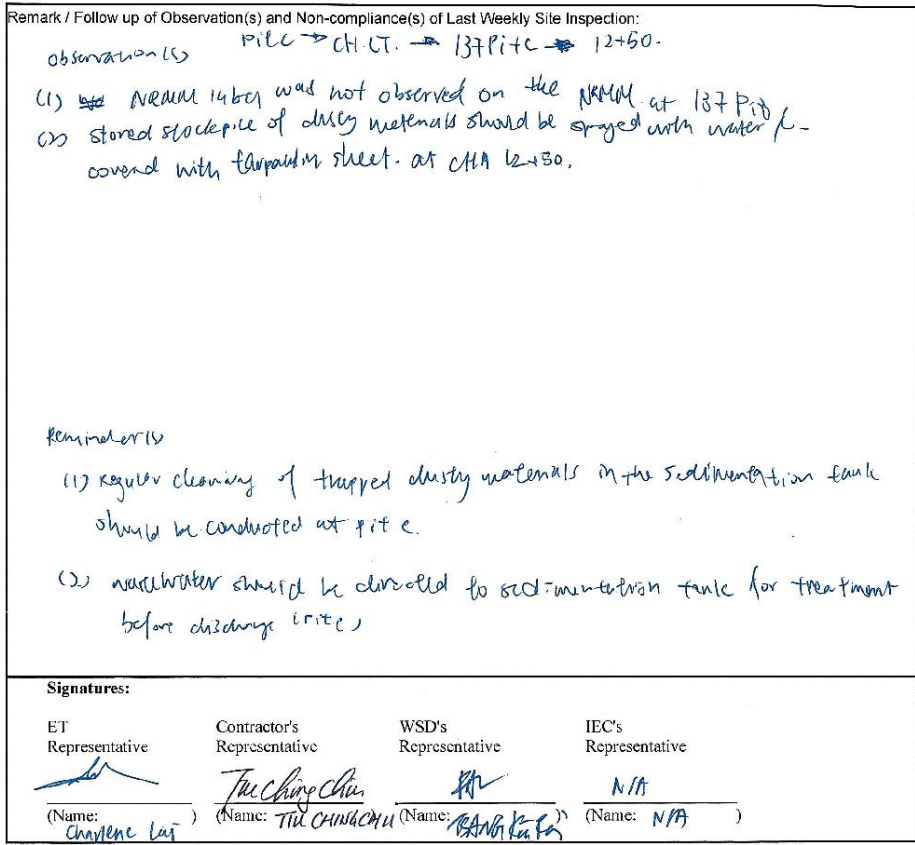 Remark / Follow up of Observation(s) and Non-compliance(s) of Last Weekly Site Inspection:
Pit C → CH.CT. → 137 Pit C → 12+50.
Observation(s)
(1) NRMM label was not observed on the NRMM at 137 Pit
(2) stored stockpile of dusty materials should be sprayed with water /
covered with tarpaulin sheet. at CHA 12+50.
Reminder(s)
(1) Regular cleaning of trapped dusty materials in the sedimentation tank
should be conducted at pit c.
(2) wastewater should be directed to sedimentation tank for treatment
before discharge
Signatures:
ET Representative
Contractor's Representative
WSD's Representative
IEC's Representative
N/A
(Name: Charlene Lai )
(Name: TIU CHING CHIU
(Name: )
(Name: N/A )